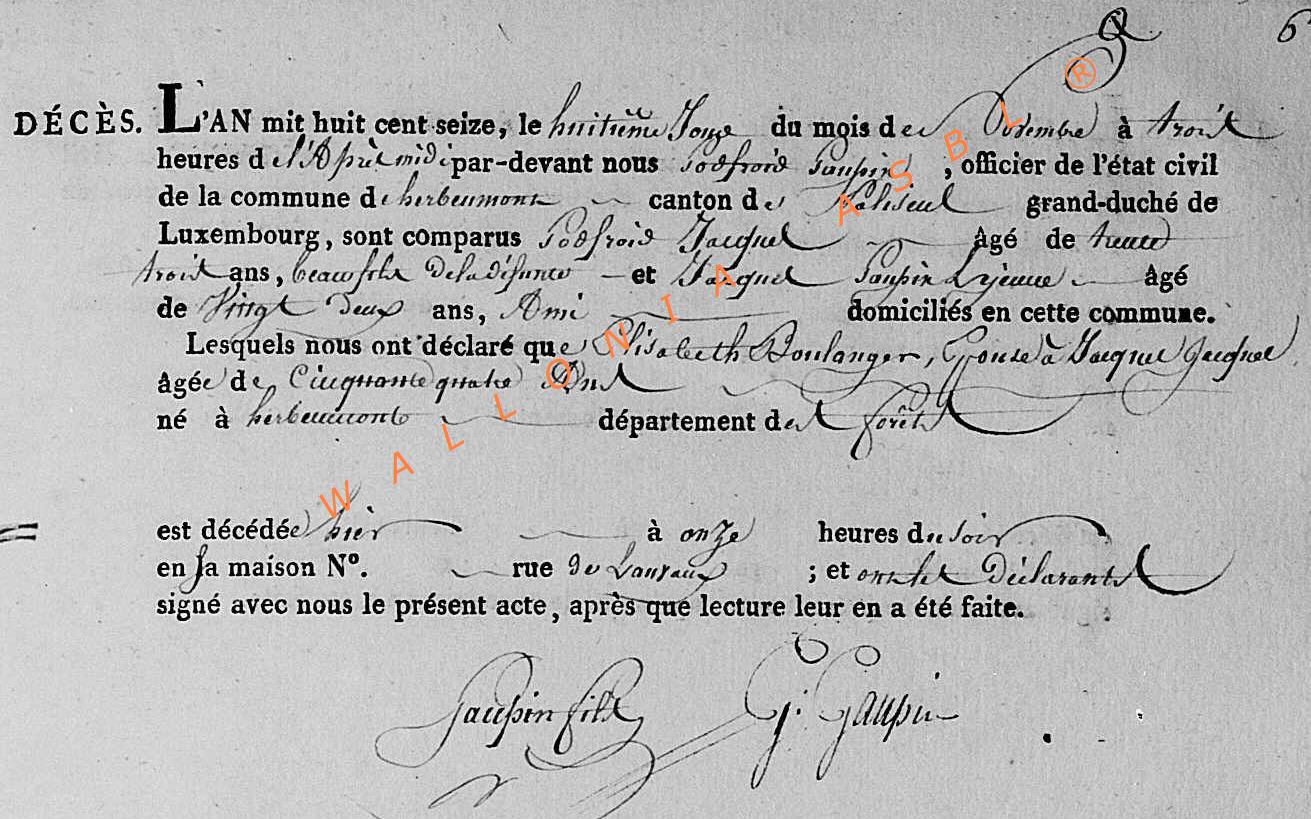 6
DÉCÈS. L'AN mil huit cent seize, le huitieme Jour du mois de Decembre à trois
heures de l'Après midi par-devant nous Godfroid Gaupin, officier de l'état civil
de la commune de herbeumont canton de Paliseul grand-duché de
Luxembourg, sont comparus Godfroid Jacques Âgé de trente
trois ans, beaufils de la défunte et Jacques Gaupin Lejeune âgé
de Vingt deux ans, Ami domiciliés en cette commune.
Lesquels nous ont déclaré que Elisabeth Boulanger, Epouse à Jacques Jacques
âgée de Cinquante quatre Ans
né à herbeumont département des forêts
est décédée hier à onze heures du soir
en sa maison N°. rue de ; et ont les Déclarants
signé avec nous le présent acte, après que lecture leur en a été faite.
Gaupin fils G: Gaupin
WALLONIA ASBL ®